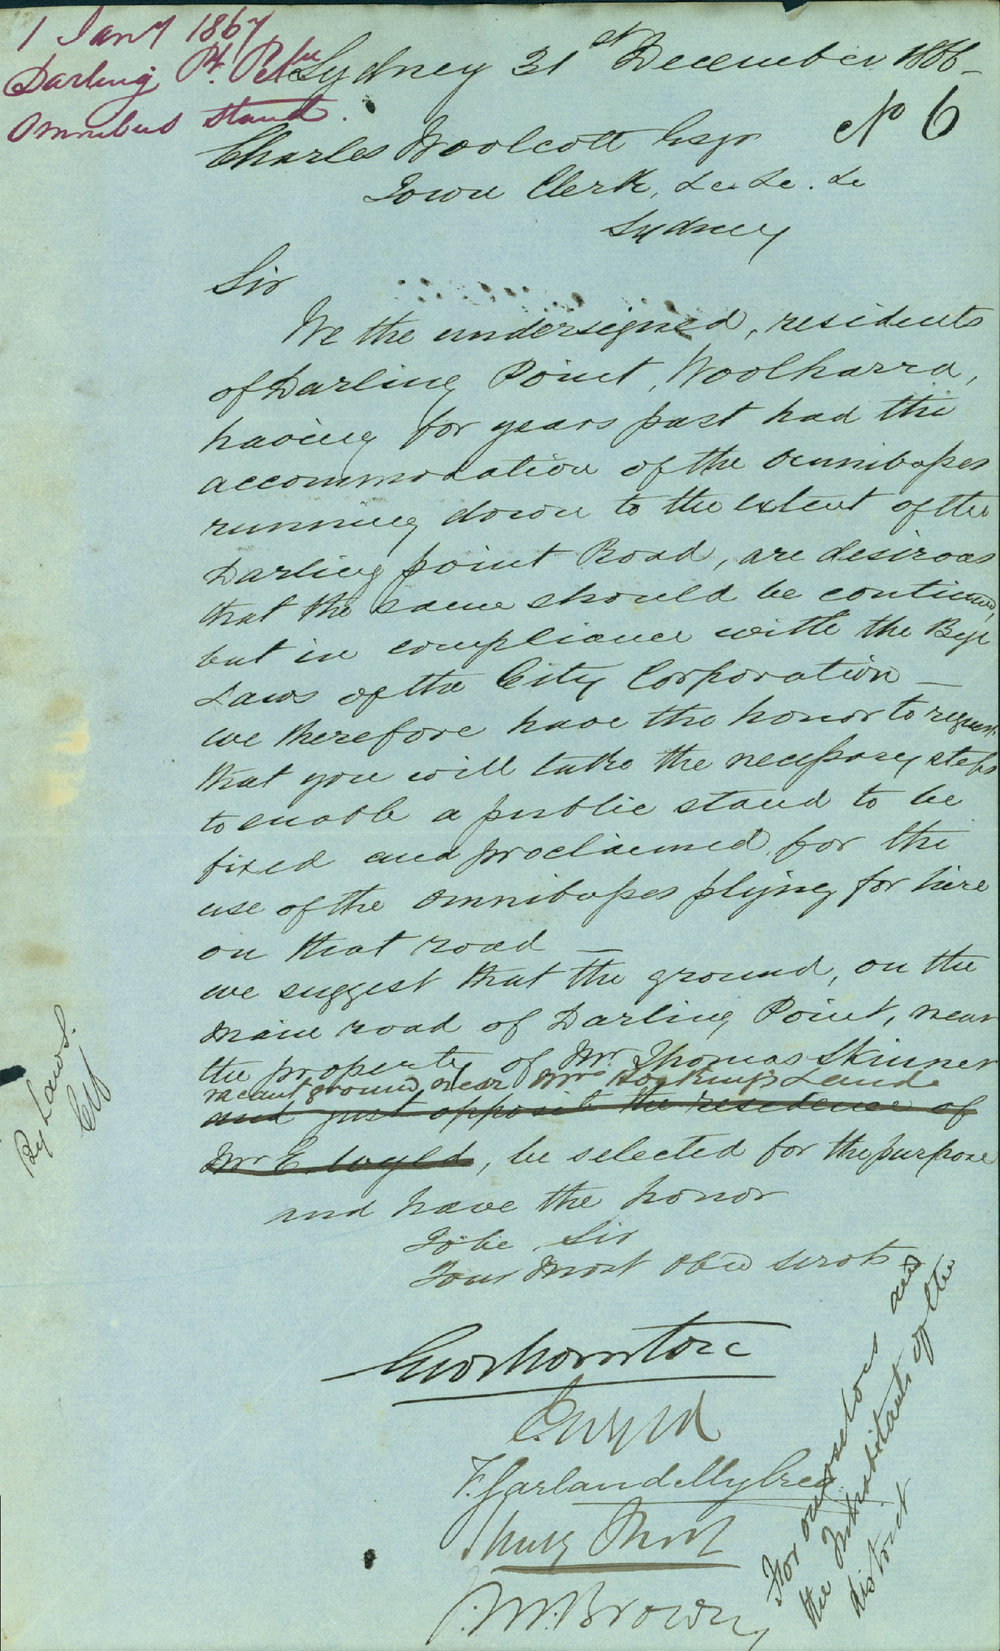 1 Jany 1867
Darling Pt. Petn
Omnibus Stand.
Sydney 31st December 1866 -
No 6
Charles Woolcott Esqr
Town Clerk, &c &c. &c
Sydney
Sir
We the undersigned, residents
of Darling Point, Woolharra,
having for years past had the
accommodation of the omnibuses
running down to the extent of the
Darling point Road, are desirous
that the same should be continued,
but in compliance with the Bye
Laws of the City Corporation —
we therefore have the honor to request
that you will take the necessary steps
to enable a public stand to be
fixed and proclaimed, for the
use of the omnibuses plying for hire
on that road —
we suggest that the ground, on the
main road of Darling Point, near
the property of Mr Thomas Skinner
vacant ground near Mrs Hosking's Land
and just opposite the residence of
Mr E. Wyld, be selected for the purpose
and have the honor
To be, Sir
Your Most Obed servts
Geo Thornton
E. Wyld
F. Garland
Henry Mort
J. M. Brown,
For ourselves and
the Inhabitants of the
district
By Laws.